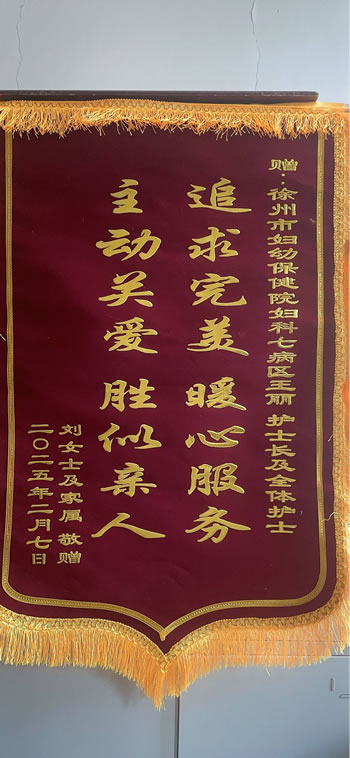 赠：徐州市妇幼保健院妇科七病区王丽 护士长及全体护士
追求完美 暖心服务
主动关爱 胜似亲人
刘女士及家属 敬赠
二〇二五年二月七日